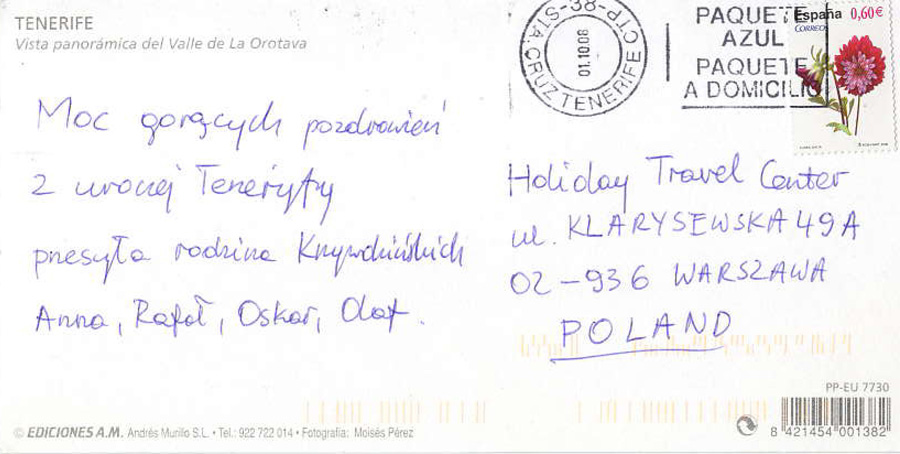 TENERIFE
Vista panorámica del Valle de La Orotava
38-CTP-STA.CRUZ TENERIFE
01.10.08
PAQUETE
AZUL
PAQUETE
A DOMICILIO
España 0,60€
CORREOS
Moc gorących pozdrowień
z uroczej Teneryfy
przesyła rodzina
Anna, Rafał, Oskar, Olaf.
Holiday Travel Center
ul. KLARYSEWSKA 49A
02-936 WARSZAWA
POLAND
PP-EU 7730
© EDICIONES A.M. Andrés Murillo S.L. • Tel.: 922 722 014 • Fotografía: Moisés Pérez
8 421454 001382